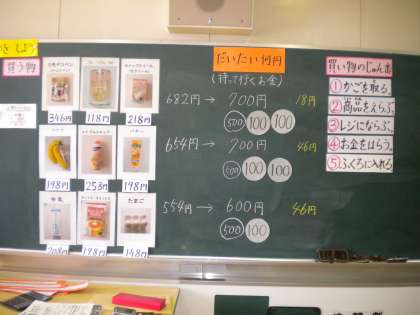 買う物
346円
118円
218円
バナナ
バター
198円
253円
198円
牛乳
たまご
208円
198円
148円
だいたい何円
(持って行くお金)
682円→700円 18円
500 100 100
654円→700円 46円
500 100 100
554円→600円 46円
500 100
買い物のじゅん番
①かごを取る。
②商品をえらぶ。
③レジにならぶ。
④お金をはらう。
⑤ふくろに入れる。